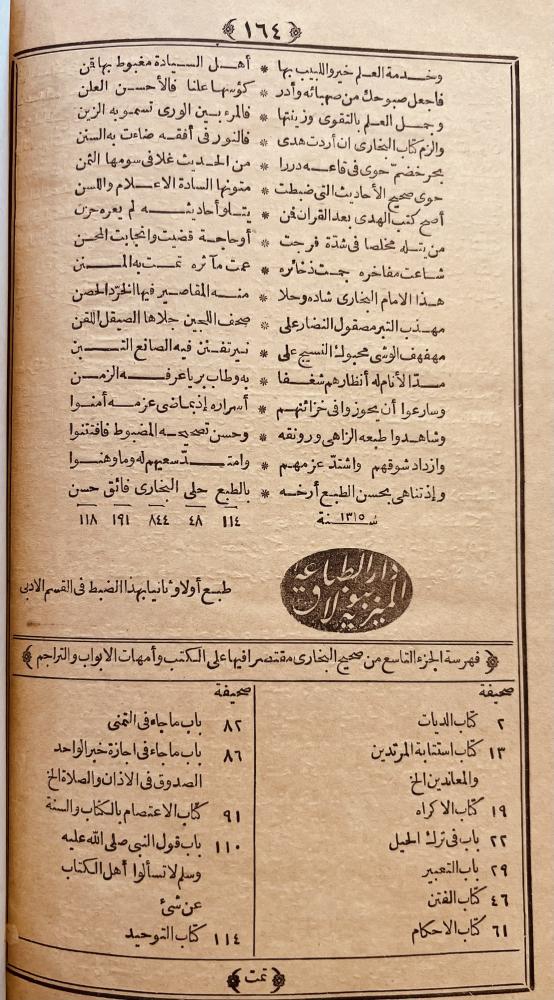 ﴿١٦٤﴾
وخدمة العلم خير واللبيب بها * أهل السيادة مغبوط بها قن
فاجعل صبوحك من صهبائه وأدر * كؤسها علنا فالأحسن العلن
وجمل العلم بالتقوى وزينتها * فالمرء بين الورى تسمو به الزين
والزم كتاب البخارى ان أردت هدى * فالنور فى أفقه ضاءت به السنن
بحر خضم حوى فى قاعه دررا * من الحديث غلا فى سومها الثمن
حوى صحيح الأحاديث التى ضبطت * متونها السادة الاعلام واللسن
أصح كتب الهدى بعد القران فن * يتلو أحاديثه لم يعره حزن
من يتله مخلصا فى شدة فرجت * أو حاجة قضيت وانجابت المحن
شاعت مفاخره جمت ذخائره * عمت مآثره تمت به المنن
هذا الامام البخارى شاده وحلا * منه المقاصير فيها الخرد الحصن
مهذب التبر مصقول النضار على * صحف اللجين جلاها الصيقل اللقن
مهفهف الوشى محبوك النسيج على * نير تفنن فيه الصانع التبن
مدّ الأنام له أنظارهم شغفا * به وطاب بريا عرفه الزمن
وسارعوا أن يحوزوا فى خزائنهم * أسراره إذ بماضى عزمه أمنوا
وشاهدوا طبعه الزاهى ورونقه * وحسن تصحيحه المضبوط فافتتنوا
وازداد شوقهم واشتدّ عزمهم * وامتدّ سعيهم له وما وهنوا
وإذ تناهى بحسن الطبع أرخه * بالطبع حلى البخارى فائق حسن
سنة ١٣١٥ ١١٤ ٤٨ ٨٤٤ ١٩١ ١١٨
دار الطباعة
الميرية ببولاق
طبع أولا وثانيا بهذا الضبط فى القسم الادبى
﴿فهرسة الجزء التاسع من صحيح البخارى مقتصرا فيها على الكتب وأمهات الابواب والتراجم﴾
صحيفة
٢ كتاب الديات
١٣ كتاب استتابة المرتدين
والمعاندين الخ
١٩ كتاب الاكراه
٢٢ باب فى ترك الحيل
٢٩ باب التعبير
٤٦ كتاب الفتن
٦١ كتاب الاحكام
صحيفة
٨٢ باب ما جاء فى التمنى
٨٦ باب ما جاء فى اجازة خبر الواحد
الصدوق فى الاذان والصلاة الخ
٩١ كتاب الاعتصام بالكتاب والسنة
١١٠ باب قول النبى صلى الله عليه
وسلم لا تسألوا أهل الكتاب
عن شئ
١١٤ كتاب التوحيد
﴿تمت﴾